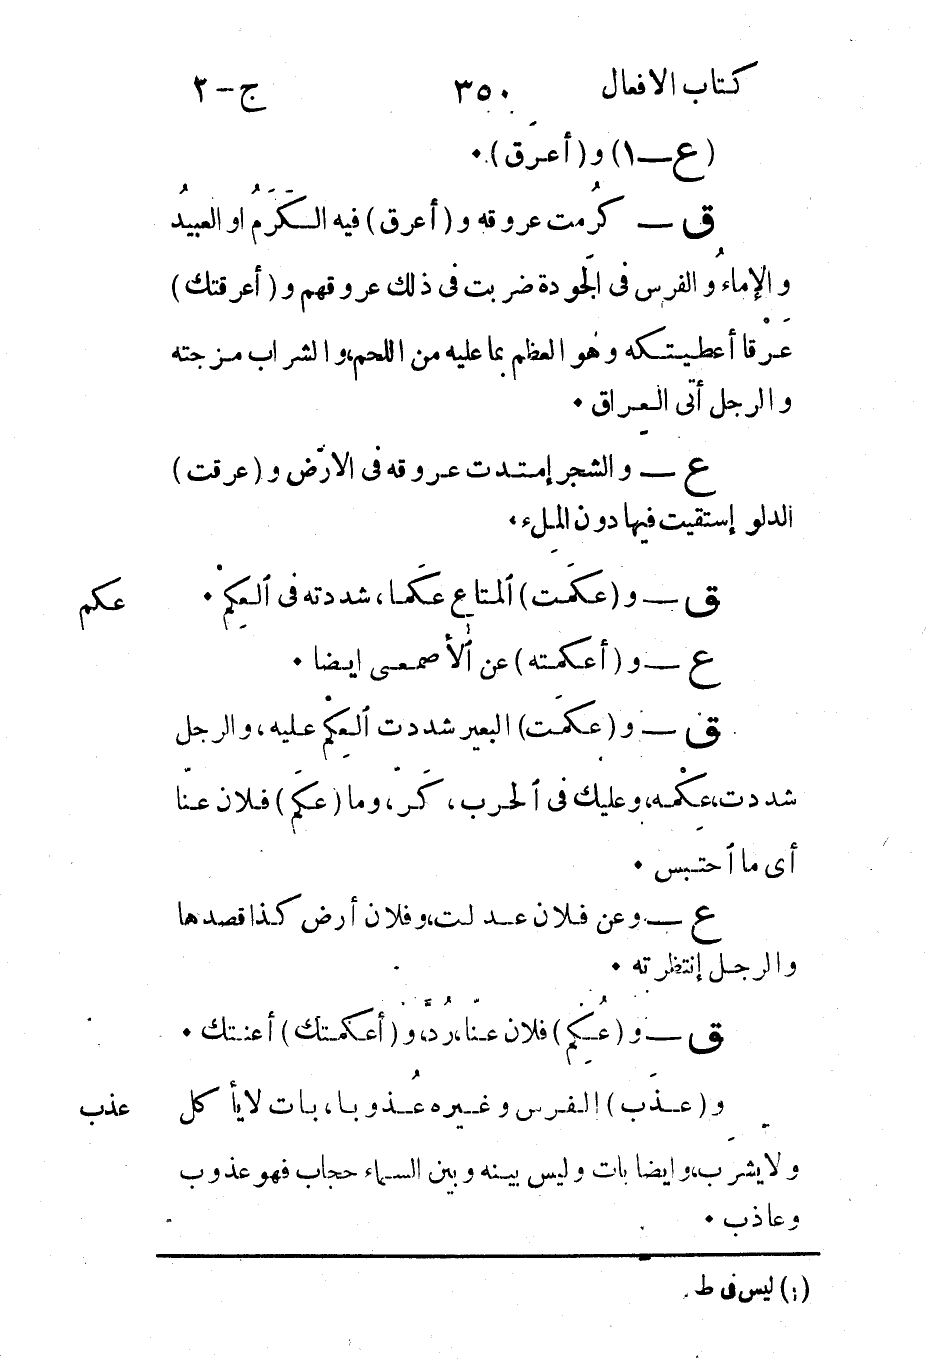 كتاب الافعال ٣٥٠ ج–٢
(ع–١) و(أعرق).
ق — كرُمت عروقه و(أعرق) فيه الكَرَمُ او العبيدُ
والإماءُ والفرس فى الجَودة ضربت فى ذلك عروقهم و(أعرقتك)
عَرْقا أعطيتكه وهُو العظم بما عليه من اللحم،والشراب مزجته
والرجل أتى العِراق.
ع — والشجر إمتدت عروقه فى الارض و(عرقت)
الدلو إستقيت فيها دون الملء.
ق — و(عكَمت) ٱلمتاع عَكما، شددته فى ٱلعِكْم. عكم
ع — و(أعكمته) عن ٱلأصمعى ايضا.
ق — و(عكَمت) البعير شددت ٱلعِكْم عليه، والرجل
شددت،عِكْمَه،وعليك فى ٱلحرب، كَرّ، وما(عكَم) فلان عنّا
أى ما ٱحتبس.
ع — وعن فلان عدلت،وفلان أرض كذا قصدها
والرجل إنتظرته.
ق — و(عُكِم) فلان عنّا،رُدَّ،و(أعكمتك) أعنتك.
و(عذَب) الفرس وغيره عُذوبا، بات لايأكل عذب
ولايشرَب،وايضا بات وليس بينه وبين السماء حجاب فهو عذوب
وعاذب.
(١) ليس فى ط.